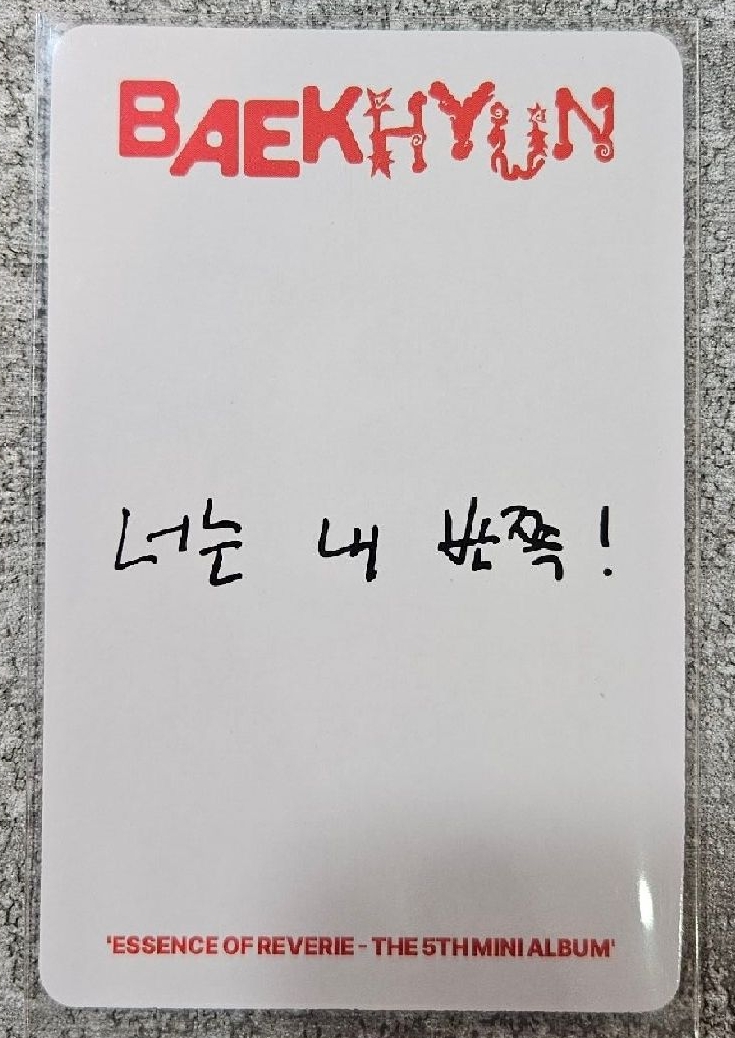 BAEKHYUN
너는 내 반쪽!
'ESSENCE OF REVERIE - THE 5TH MINI ALBUM'